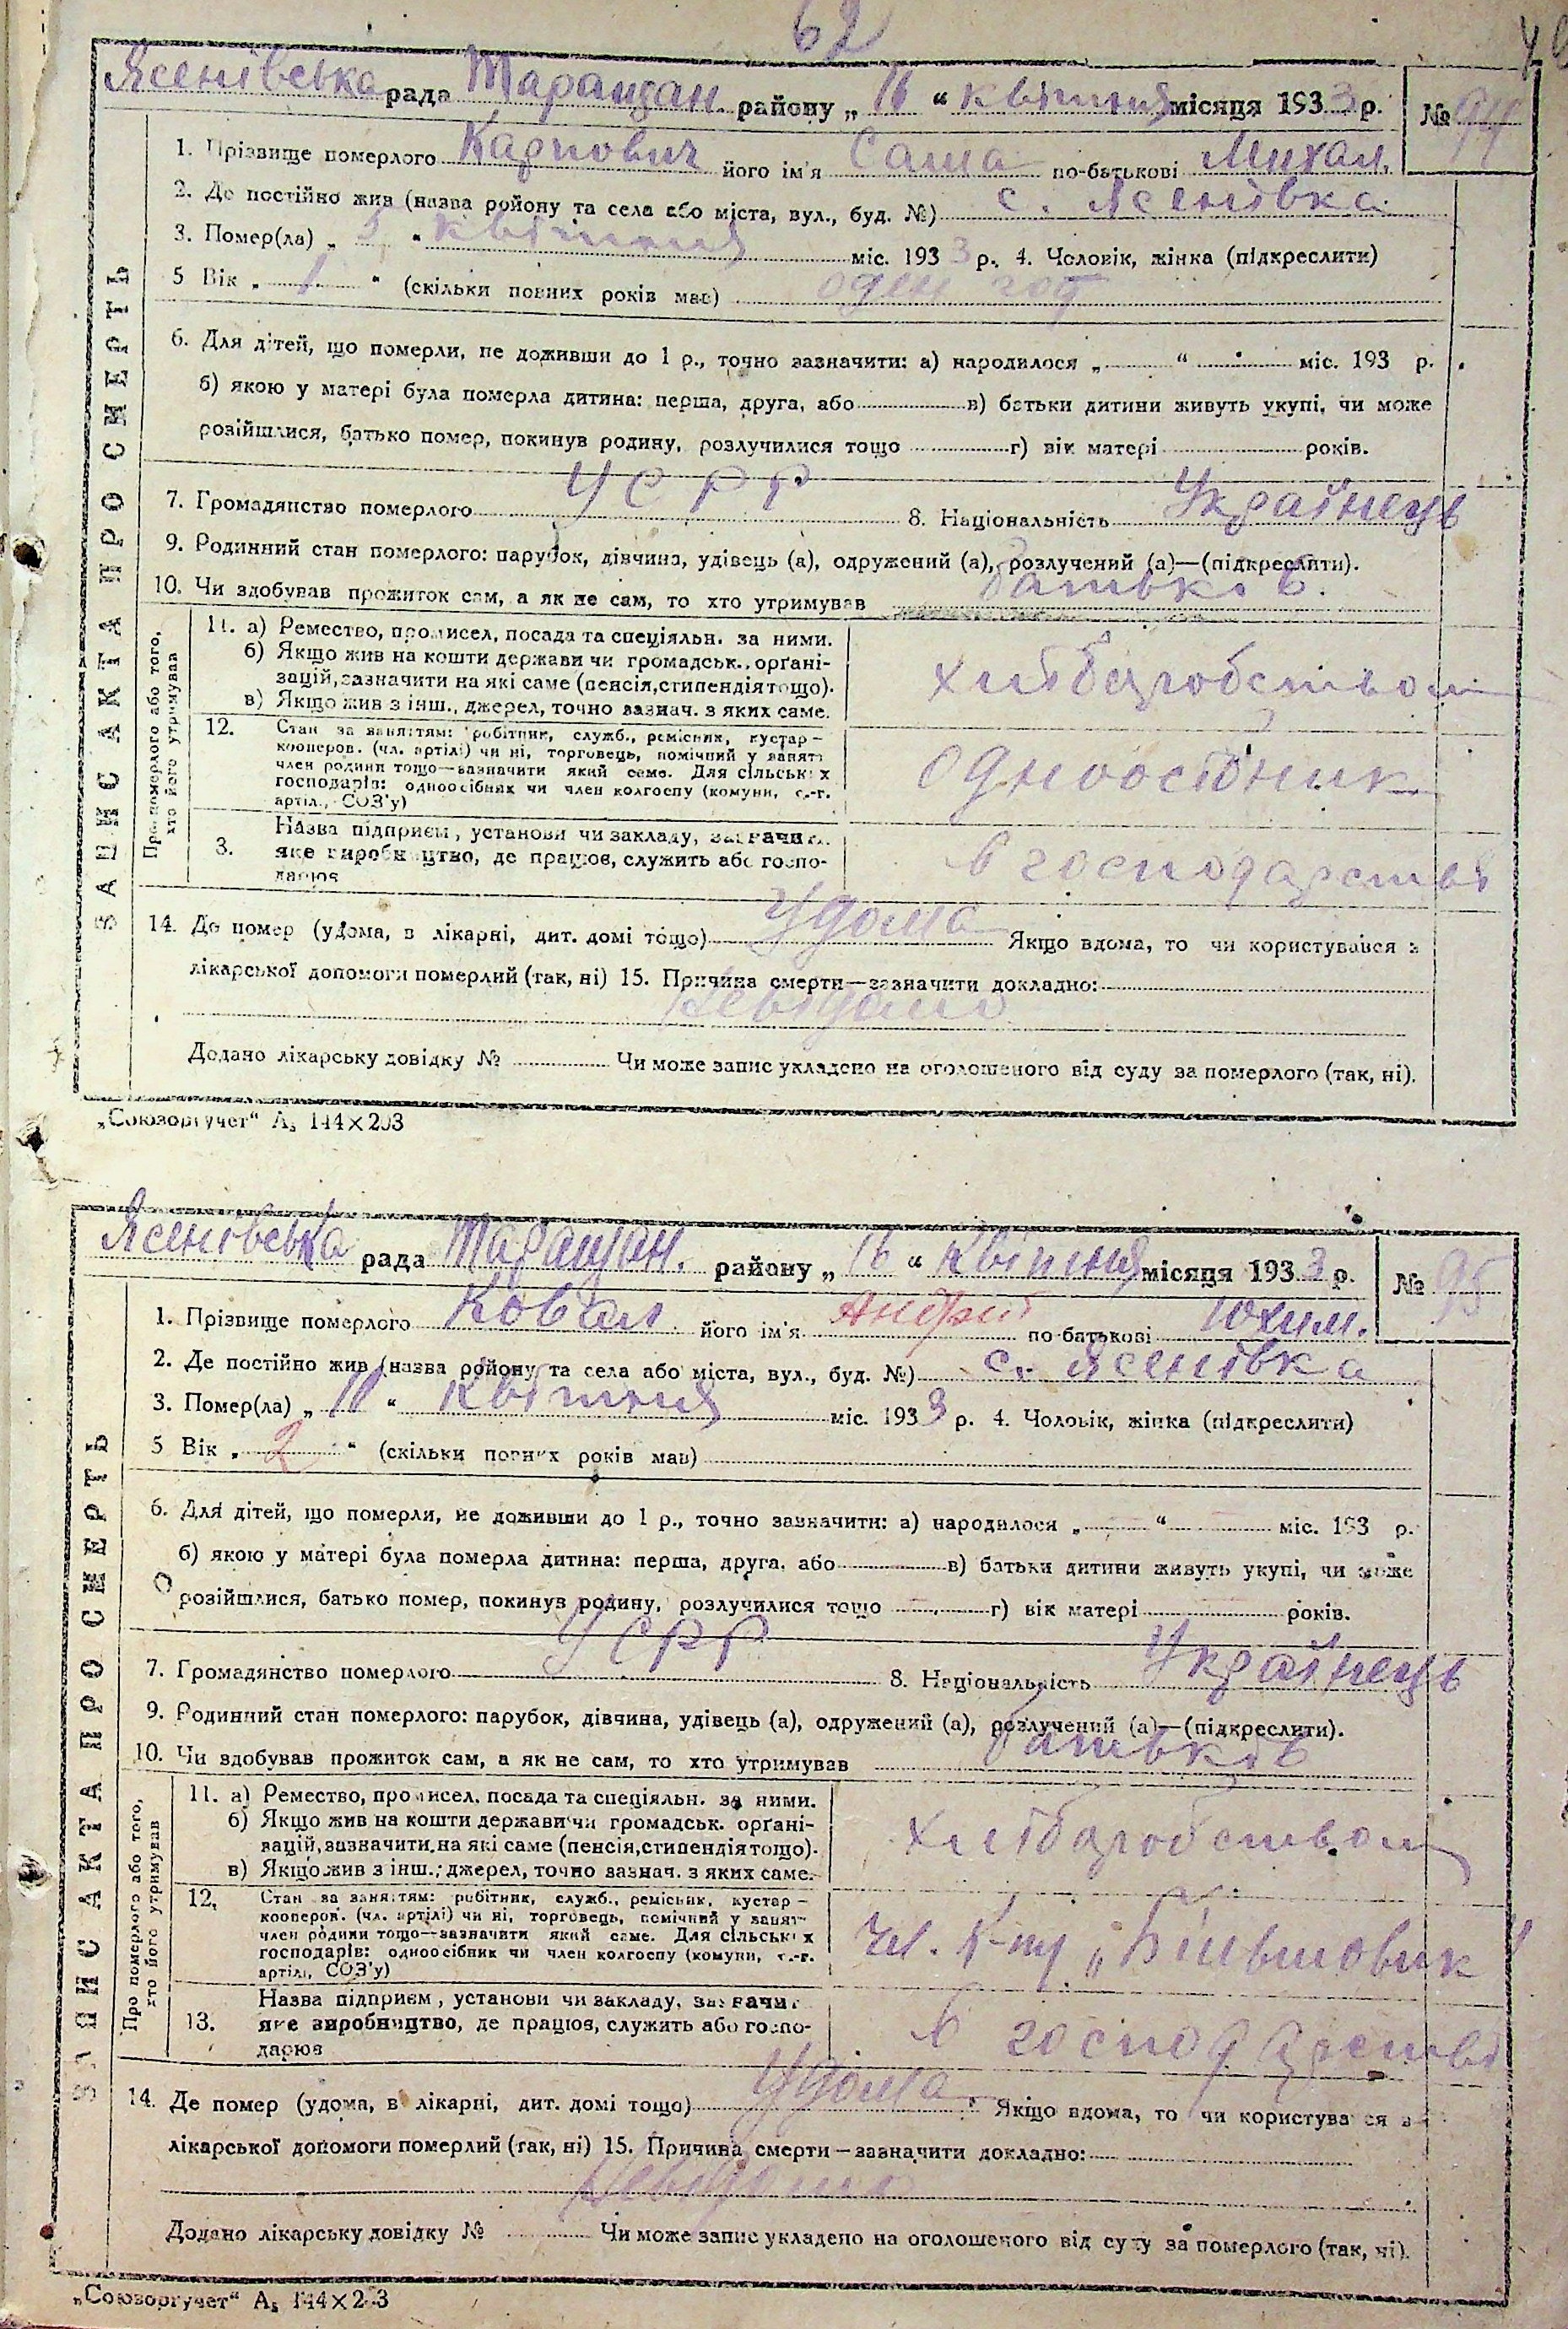 62
Ясенівська рада Таращан. району „16“ квітня місяця 1933 р. № 94
ЗАПИС АКТА ПРО СМЕРТЬ
1. Прізвище померлого Карпович його ім'я Саша по-батькові Михал.
2. Де постійно жив (назва ройону та села або міста, вул., буд. №) с. Ясенівка
3. Помер(ла) „5“ квітня міс. 1933 р. 4. Чоловік, жінка (підкреслити)
5 Вік „1“ (скільки повних років мав) один год
6. Для дітей, що померли, не доживши до 1 р., точно зазначити: а) народилося „ “ міс. 193 р.
б) якою у матері була померла дитина: перша, друга, або в) батьки дитини живуть укупі, чи може
розійшлися, батько помер, покинув родину, розлучилися тощо г) вік матері років.
7. Громадянство померлого УСРР 8. Національність Українець
9. Родинний стан померлого: парубок, дівчина, удівець (а), одружений (а), розлучений (а)—(підкреслити).
10. Чи здобував прожиток сам, а як не сам, то хто утримував батьків.
Про померлого або того,
хто його утримував
11. а) Ремество, промисел, посада та спеціяльн. за ними.
б) Якщо жив на кошти держави чи громадськ., орґані-
зацій, зазначити на які саме (пенсія, стипендія тощо).
в) Якщо жив з інш., джерел, точно зазнач. з яких саме.
хліборобством
12. Стан за заняттям: робітник, служб., ремісник, кустар —
кооперов. (чл. артілі) чи ні, торговець, помічний у занят.
член родини тощо—зазначити який саме. Для сільських
господарів: одноосібник чи член колгоспу (комуни, с.-г.
артіл., СОЗ'у)
одноосібник
3. Назва підприєм., установи чи закладу, зазначит.
яке виробництво, де працює, служить або госпо-
дарює
в господарстві
14. Де помер (удома, в лікарні, дит. домі тощо) Удома Якщо вдома, то чи користувався з
лікарської допомоги померлий (так, ні) 15. Причина смерти—зазначити докладно:
Невідомо
Додано лікарську довідку № Чи може запис укладено на оголошеного від суду за померлого (так, ні).
„Союзоргучет“ А₅ 144×203
Ясенівська рада Таращан. району „16“ Квітня місяця 1933 р. № 95
ЗАПИС АКТА ПРО СМЕРТЬ
1. Прізвище померлого Ковал його ім'я Андрій по-батькові Юхим.
2. Де постійно жив (назва ройону та села або міста, вул., буд. №) с. Ясенівка
3. Помер(ла) „ “ Квітня міс. 1933 р. 4. Чоловік, жінка (підкреслити)
5 Вік „2“ (скільки повних років мав)
6. Для дітей, що померли, не доживши до 1 р., точно зазначити: а) народилося „ “ міс. 193 р.
б) якою у матері була померла дитина: перша, друга, або в) батьки дитини живуть укупі, чи може
розійшлися, батько помер, покинув родину, розлучилися тощо г) вік матері років.
7. Громадянство померлого УСРР 8. Національність Українець
9. Родинний стан померлого: парубок, дівчина, удівець (а), одружений (а), розлучений (а)—(підкреслити).
10. Чи здобував прожиток сам, а як не сам, то хто утримував батьків
Про померлого або того,
хто його утримував
11. а) Ремество, промисел, посада та спеціяльн. за ними.
б) Якщо жив на кошти держави чи громадськ. орґані-
зацій, зазначити на які саме (пенсія, стипендія тощо).
в) Якщо жив з інш., джерел, точно зазнач. з яких саме.
хліборобством
12. Стан за заняттям: робітник, служб., ремісник, кустар —
кооперов. (чл. артілі) чи ні, торговець, помічний у занят.
член родини тощо—зазначити який саме. Для сільських
господарів: одноосібник чи член колгоспу (комуни, с.-г.
артіл., СОЗ'у)
чл. к-пу „Більшовик“
13. Назва підприєм., установи чи закладу, зазначит.
яке виробництво, де працює, служить або госпо-
дарює
в господарстві
14. Де помер (удома, в лікарні, дит. домі тощо) Удома Якщо вдома, то чи користувався з
лікарської допомоги померлий (так, ні) 15. Причина смерти—зазначити докладно:
Невідомо
Додано лікарську довідку № Чи може запис укладено на оголошеного від суду за померлого (так, ні).
„Союзоргучет“ А₅ 144×203